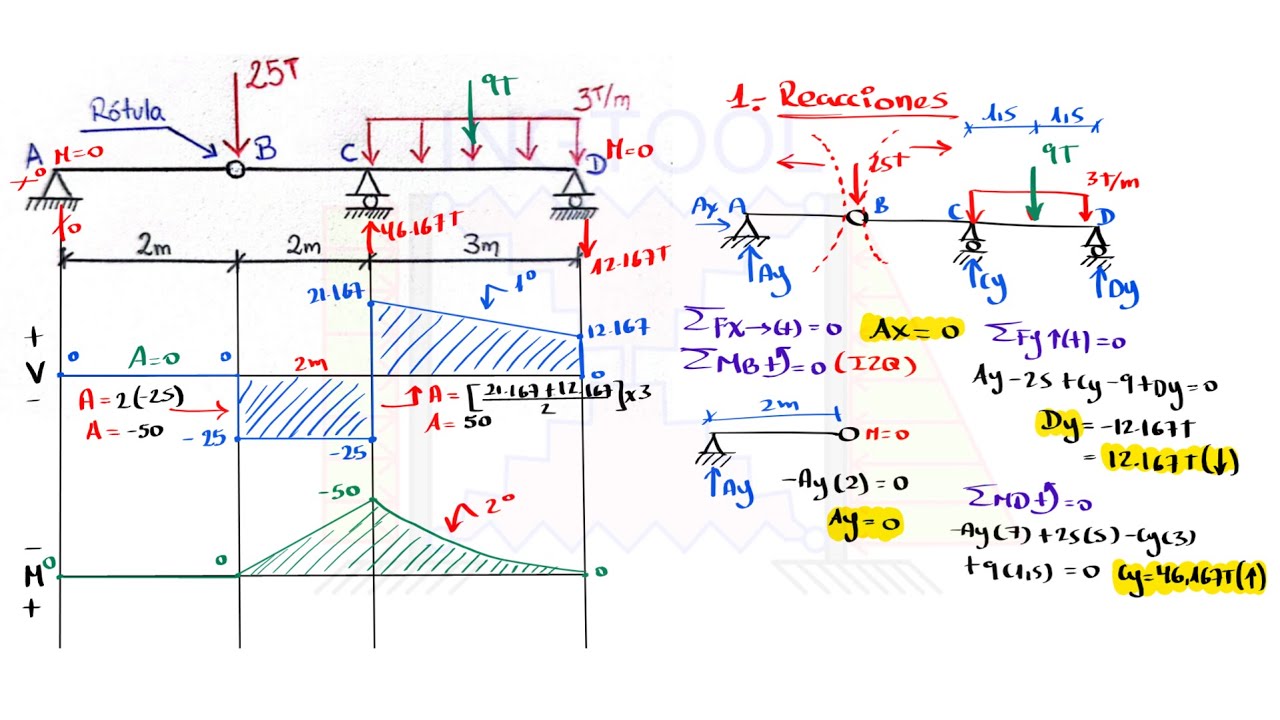 25T
9T
3T/m
Rótula
A M=0
B
C
D M=0
0
0
46.167T
12.167T
2m
2m
3m
21.167
1°
12.167
+
V
-
0
A=0
0
2m
0
A=2(-25)
A=-50
-25
-25
A=[(21.167+12.167)/2]x3
A=50
-50
2°
-
M
+
0
0
0
INGTOOL
1.- Reacciones
25T
1,5
1,5
9T
3T/m
Ax A
B
C
D
Ay
Cy
Dy
ΣFx→(+)=0
Ax=0
ΣMB+)=0 (IZQ)
2m
M=0
Ay
-Ay(2)=0
Ay=0
ΣFy↑(+)=0
Ay-25+Cy-9+Dy=0
Dy=-12.167T
=12.167T(↓)
ΣMD+)=0
-Ay(7)+25(5)-Cy(3)
+9(1,5)=0 Cy=46,167T(↑)